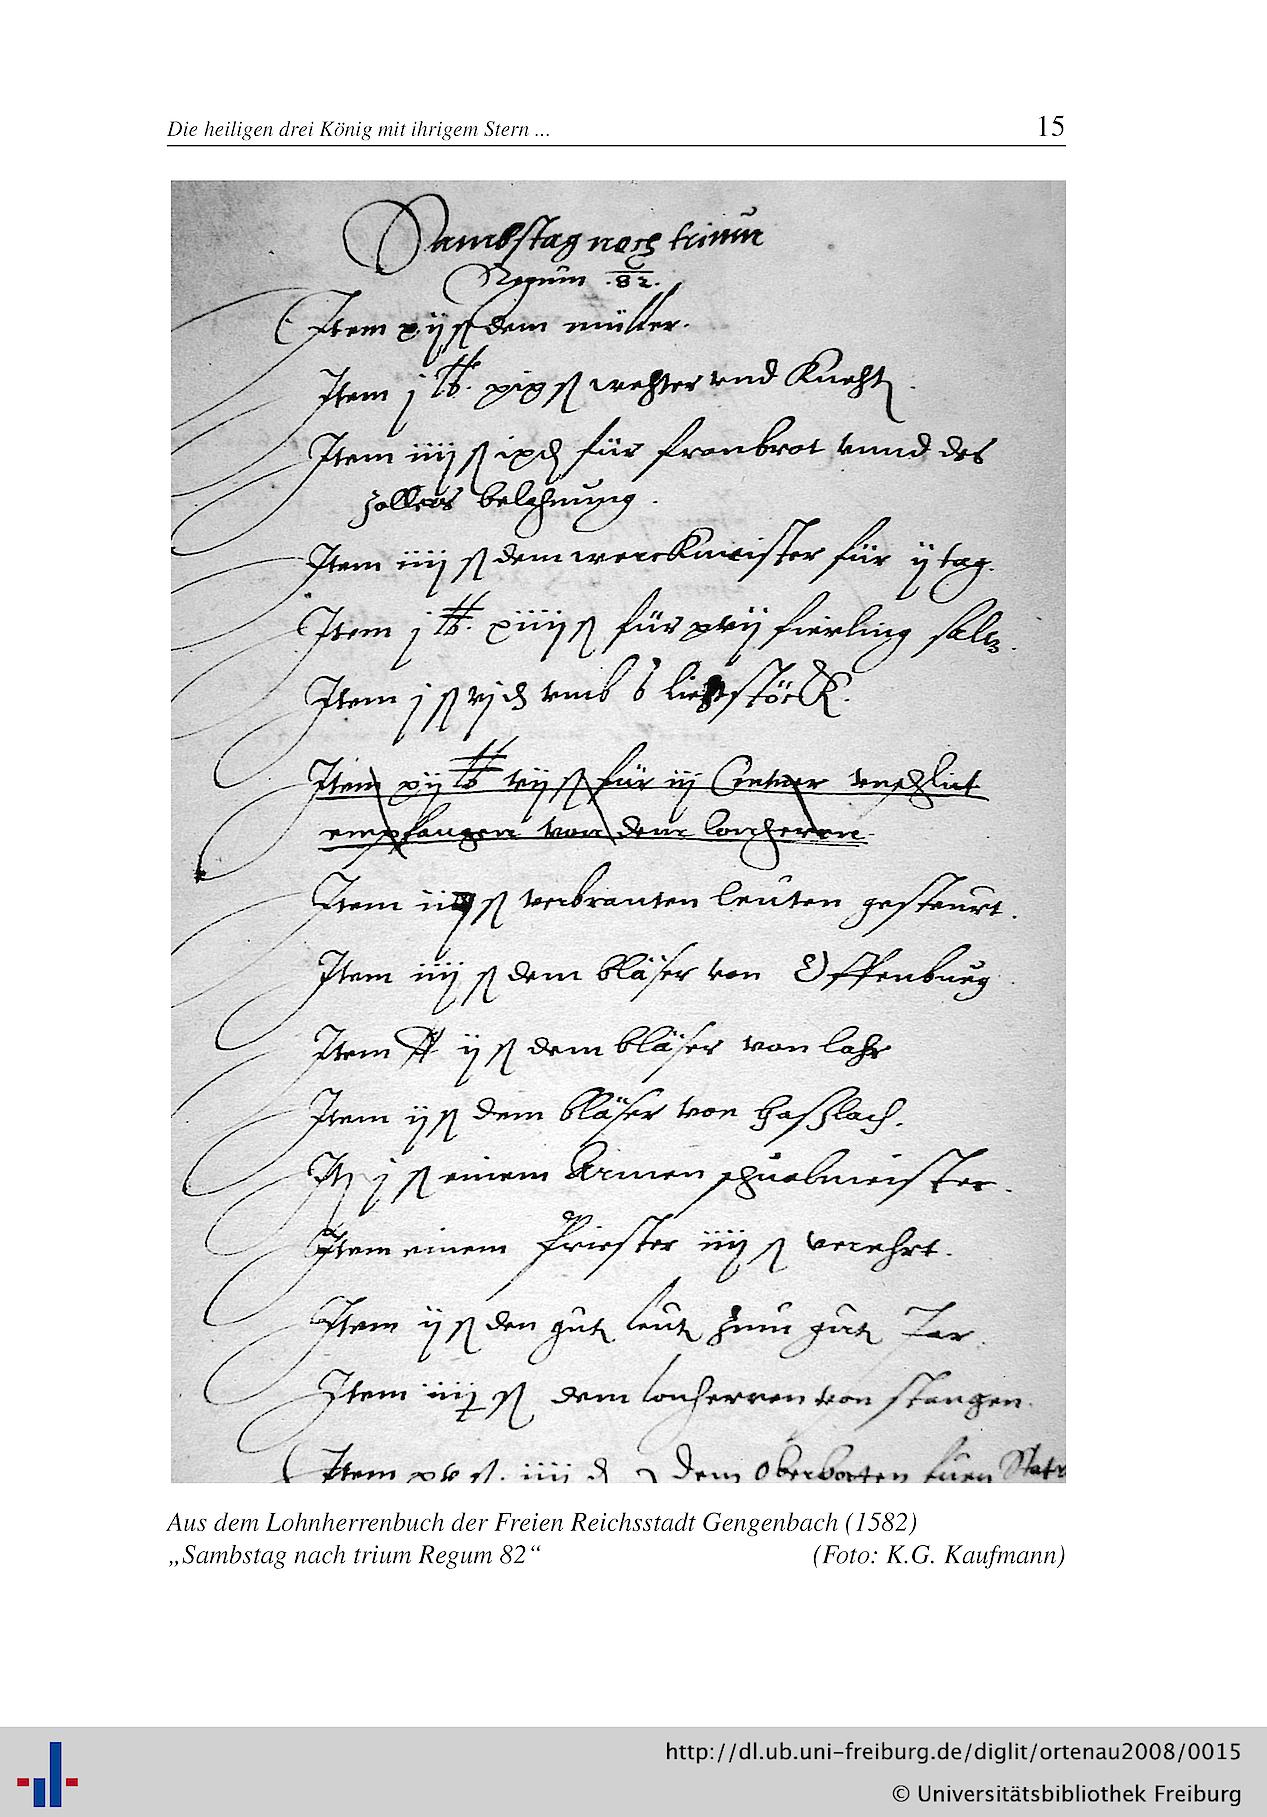 Die heiligen drei König mit ihrigem Stern ... 15
Sambstag noch trium
Regum .82.
Item xij ß dem müller.
Item j lb. xix ß wehter vnd Kneht
Item iiij ß ix d für fronbrot vnnd des
zollers belohnung.
Item iiij ß dem werckmeister für ij tag.
Item j lb. xiiij ß für xvij fierling saltz.
Item j ß vj d vmb 6 liehtstöck.
Item xij lb vij ß für iij Centner vnschlit
empfangen von dem lonherrn.
Item ß verbranten leuten gesteurt.
Item iiij ß dem bläser von Offenburg
Item ij ß dem bläser von lahr
Item ij ß dem bläser von Haßlach.
It j ß einem Armen schuolmeister.
Item einem Priester iiij ß verehrt.
Item ij ß den gut leut zum gut Jar.
Item iiij ß dem lonherren von stangen.
Item xv ß. iiij d dem oberbotten
Aus dem Lohnherrenbuch der Freien Reichsstadt Gengenbach (1582)
„Sambstag nach trium Regum 82“ (Foto: K.G. Kaufmann)
http://dl.ub.uni-freiburg.de/diglit/ortenau2008/0015
© Universitätsbibliothek Freiburg